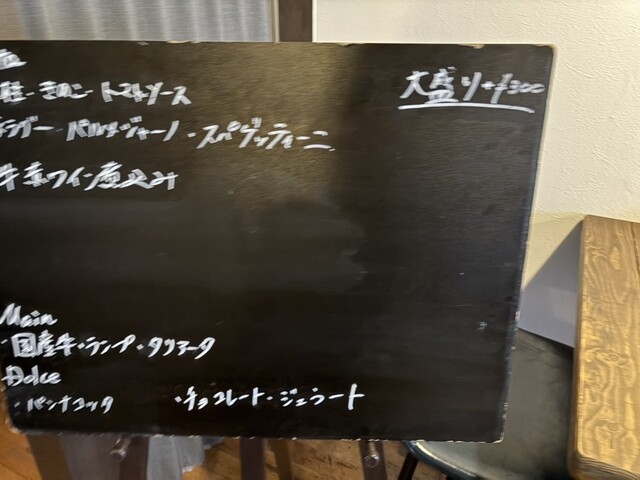 大盛り+¥300
鮭・きのこ・トマトソース
ラグー・パルミジャーノ・スパゲッティーニ
牛赤ワイン煮込み
Main
・国産牛・ランプ・タリアータ
Dolce
・パンナコッタ ・チョコレート・ジェラート